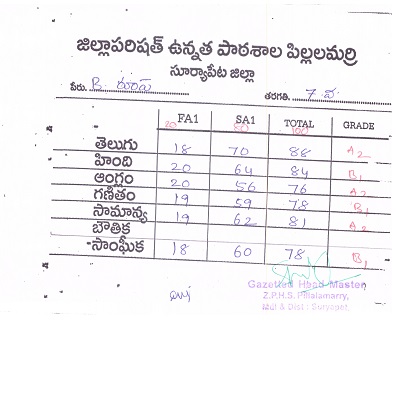 జిల్లాపరిషత్ ఉన్నత పాఠశాల పిల్లలమర్రి
సూర్యాపేట జిల్లా
పేరు. B రూప తరగతి. 7 వ
FA1 SA1 TOTAL GRADE
20 80 100
తెలుగు 18 70 88 A2
హింది 20 64 84 B1
ఆంగ్లం 20 56 76 A2
గణితం 19 59 78 B1
సామాన్య 19 62 81 A2
భౌతిక
సాంఘీక 18 60 78 B1
Gazetted Head Master
Z.P.H.S. Pillalamarry,
Mdl & Dist: Suryapet.